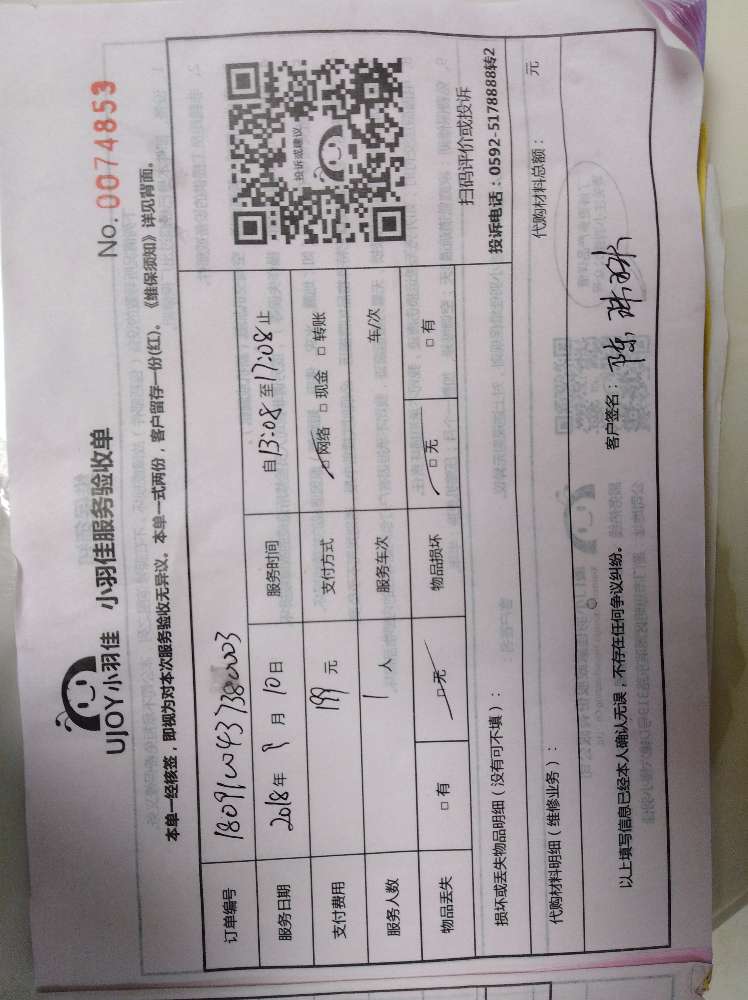 UJOY小羽佳 小羽佳服务验收单
No. 0074853
本单一经核签，即视为对本次服务验收无异议。本单一式两份，客户留存一份(红)。《维保须知》详见背面。
订单编号
服务日期 2018年 9 月 10日 服务时间 自13:08至17:08止
支付费用 199 元 支付方式 □网络 □现金 □转账
服务人数 1 人 服务车次 车/次
物品丢失 □有 □无 物品损坏 □无 □有
投诉或建议
扫码评价或投诉
投诉电话：0592-5178888转2
损坏或丢失物品明细（没有可不填）：
代购材料明细（维修业务）： 代购材料总额： 元
以上填写信息已经本人确认无误，不存在任何争议纠纷。 客户签名：陈